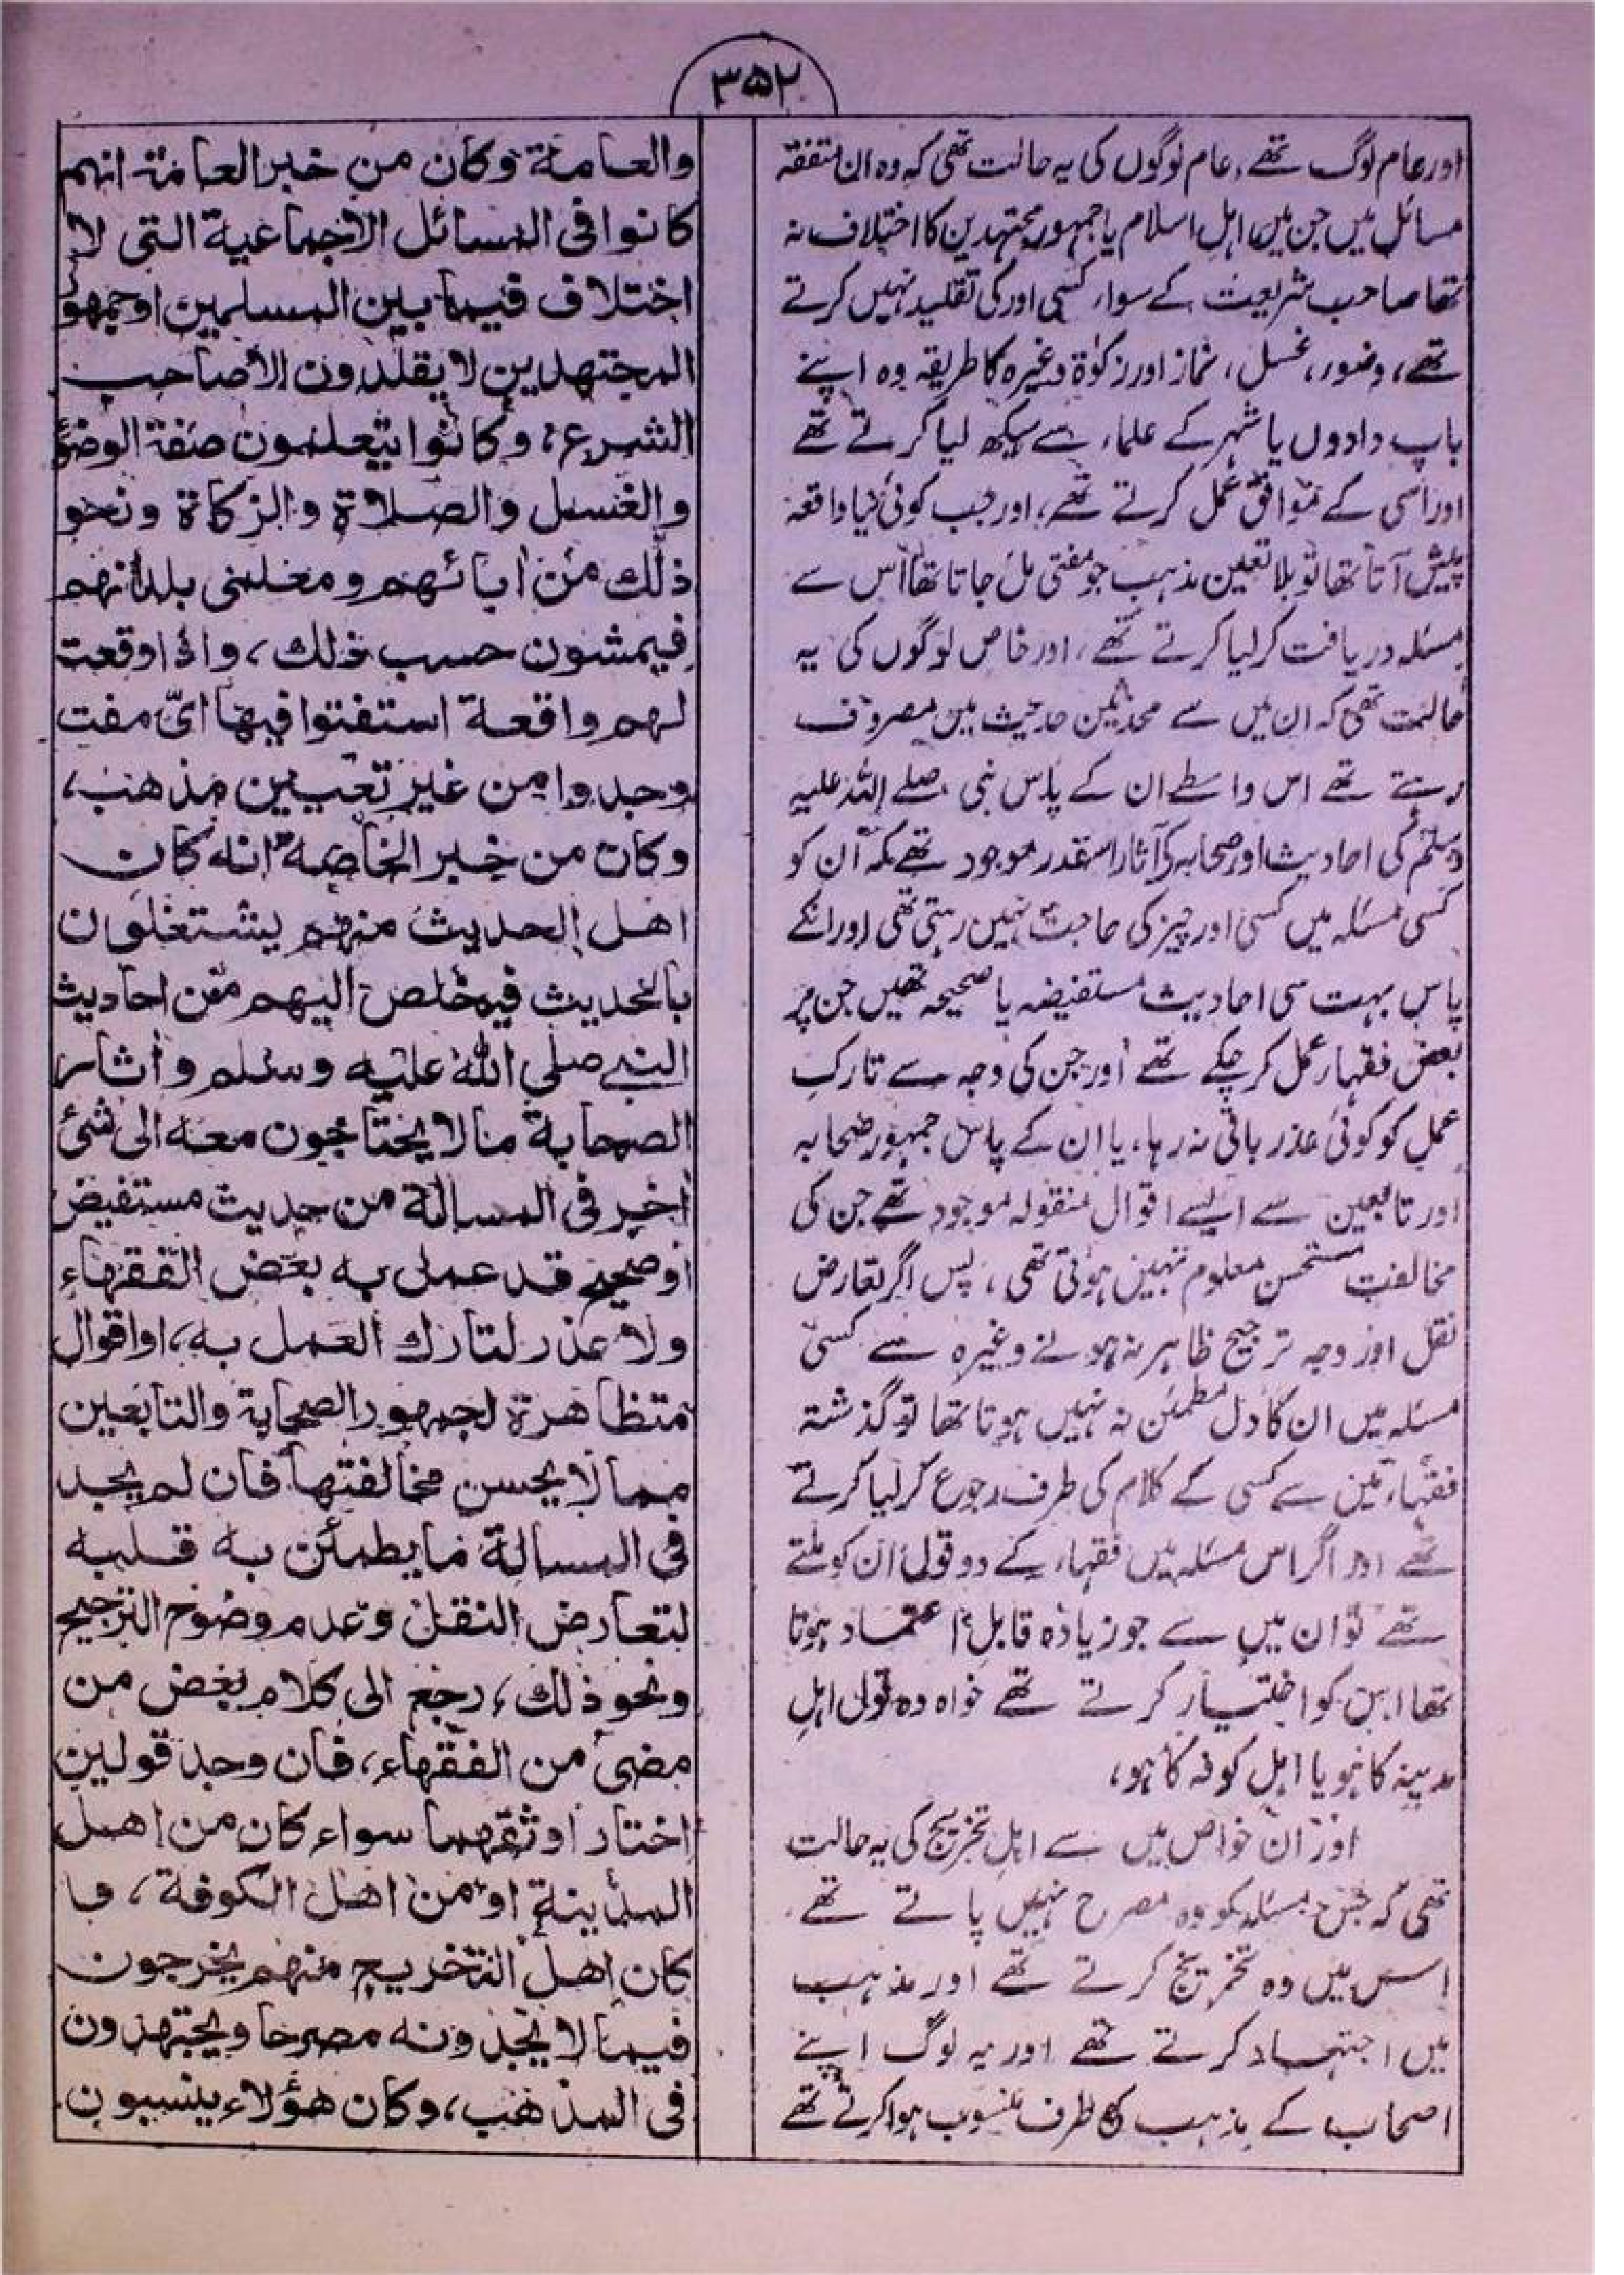 ۳۵۲
اور عام لوگ تھے، عام لوگوں کی یہ حالت تھی کہ وہ ان متفقہ
مسائل میں جن میں اہل اسلام یا جمہور مجتہدین کا اختلاف نہ
تھا صاحب شریعت کے سوا، کسی اور کی تقلید نہیں کرتے
تھے، وضور، غسل، نماز اور زکوٰۃ وغیرہ کا طریقہ وہ اپنے
باپ دادوں یا شہر کے علماء سے سیکھ لیا کرتے تھے
اور اسی کے موافق عمل کرتے تھے، اور جب کوئی نیا واقعہ
پیش آتا تھا تو بلا تعیین مذہب جو مفتی مل جاتا تھا اُس سے
مسئلہ دریافت کر لیا کرتے تھے، اور خاص لوگوں کی یہ
حالت تھی کہ ان میں سے محدثین حدیث میں مصروف
رہتے تھے اس واسطے ان کے پاس نبی صلے اللہ علیہ
وسلم کی احادیث اور صحابہ کے آثار اسقدر موجود تھے کہ اُن کو
کسی مسئلہ میں کسی اور چیز کی حاجت نہیں رہتی تھی اور انکے
پاس بہت سی احادیث مستفیضہ یا صحیحہ تھیں جن پر
بعض فقہار عمل کر چکے تھے اور جن کی وجہ سے تارکِ
عمل کو کوئی عذر باقی نہ رہا، یا ان کے پاس جمہور صحابہ
اور تابعین سے ایسے اقوال منقولہ موجود تھے جن کی
مخالفت مستحسن معلوم نہیں ہوتی تھی، پس اگر تعارض
نقل اور وجہ ترجیح ظاہر نہ ہونے وغیرہ سے کسی
مسئلہ میں ان کا دل مطمئن نہ نہیں ہوتا تھا تو گذشتہ
فقہاء میں سے کسی کے کلام کی طرف رجوع کر لیا کرتے
تھے اور اگر اس مسئلہ میں فقہاء کے دو قول ان کو ملتے
تھے تو ان میں سے جو زیادہ قابل اعتماد ہوتا
تھا اس کو اختیار کرتے تھے خواہ وہ قول اہلِ
مدینہ کا ہو یا اہلِ کوفہ کا ہو،
اور ان خواص میں سے اہلِ تخریج کی یہ حالت
تھی کہ جس مسئلہ کو وہ مصرح نہیں پاتے تھے
اس میں وہ تخریج کرتے تھے اور مذہب
میں اجتہاد کرتے تھے اور یہ لوگ اپنے
اصحاب کے مذہب کی طرف منسوب ہوا کرتے تھے
والعامة وكان من خبر العامة انهم
كانوا فى المسائل الاجماعية التى لا
اختلاف فيها بين المسلمين او جمهو
المجتهدين لا يقلدون الا صاحب
الشرع، وكانوا يتعلمون صفة الوضؤ
والغسل والصلاة والزكاة ونحو
ذلك من ابائهم ومعلمى بلدانهم
فيمشون حسب ذلك، واذا وقعت
لهم واقعة استفتوا فيها اىّ مفت
وجدوا من غير تعيين مذهب،
وكان من خبر الخاصة انه كان
اهل الحديث منهم يشتغلون
بالحديث فيخلص اليهم من احاديث
النبى صلى الله عليه وسلم واثار
الصحابة ما لا يحتاجون معه الى شئ
اخر فى المسالة من حديث مستفيض
او صحيح قد عمل به بعض الفقهاء
ولا عذر لتارك العمل به، او اقوال
متظاهرة لجمهور الصحابة والتابعين
مما لا يحسن مخالفتها فان لم يجد
فى المسالة ما يطمئن به قلبه
لتعارض النقل وعدم وضوح الترجيح
ونحو ذلك، رجع الى كلام بعض من
مضى من الفقهاء، فان وجد قولين
اختار اوثقهما سواء كان من اهل
المدينة او من اهل الكوفة، و
كان اهل التخريج منهم يخرجون
فيما لا يجدونه مصرحا ويجتهدون
فى المذهب، وكان هؤلاء ينسبون